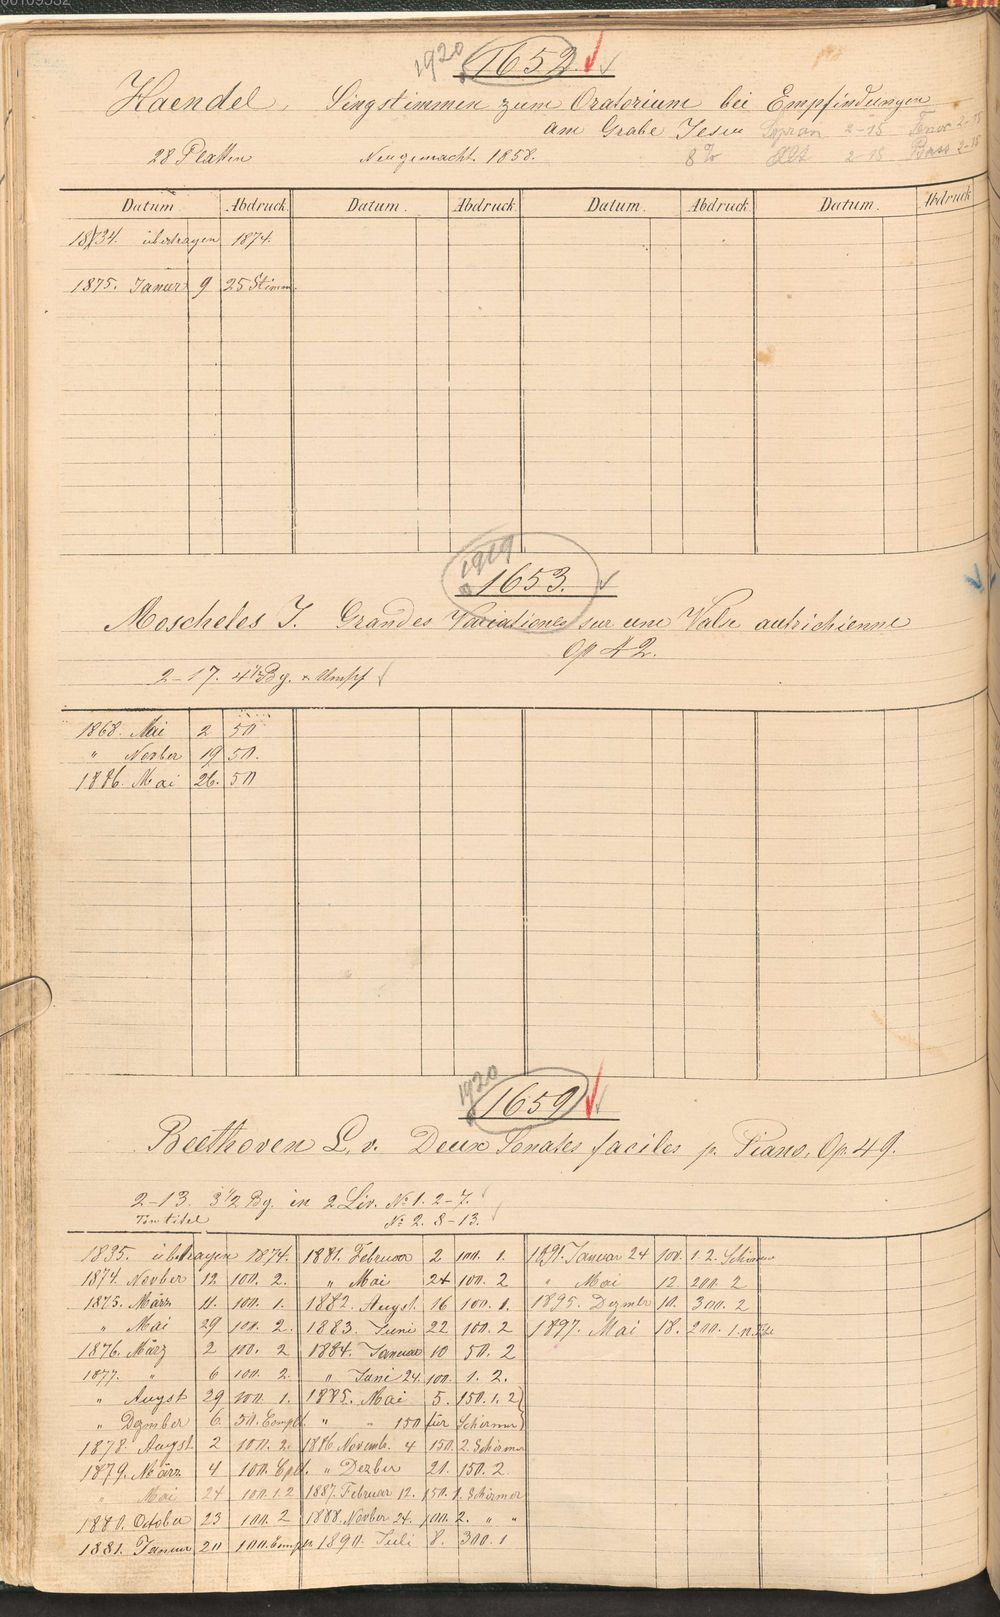 1920 1652.
Haendel, Singstimmen zum Oratorium bei Empfindungen
am Grabe Jesu Sopran 2-15 Tenor 2-15
28 Platten Neugemacht 1858. 8% Alt 2-15 Bass 2-15
Datum Abdruck Datum. Abdruck Datum. Abdruck Datum. Abdruck
1834. übertragen 1874.
1875. Januar 9 25 Stimm.
1919
1653.
Moscheles J. Grandes Variationes sur une Valse autrichienne
Op 42.
2-17. 4 1/2 Bg.
1868. Mai 2 50
" Novber 19 50.
1886. Mai 26. 50
1920 1659
Beethoven L. v. Deux Sonates faciles p. Piano. Op. 49.
2-13. 3 1/2 Bg. in 2 Liv. No 1. 2-7.
Tontitel No 2. 8-13.
1835. übertragen 1874. 1881. Februar 2 100. 1. 1891. Januar 24 100. 1. 2. Schirmer
1874. Novber 12. 100. 2. " Mai 24 100. 2 " Mai 12 200. 2
1875. März 11. 100. 1. 1882. Augst 16 100. 1. 1895. Dezmbr 10. 300. 2
" Mai 29 100. 2. 1883. Juni 22 100. 2 1897. Mai 18. 200. 1. n. Title
1876. März 2 100. 2 1884. Januar 10 50. 2
1877. " 6 100. 2. " Juni 24 100. 1. 2.
" Augst 29 100. 1. 1885. Mai 5. 150. 1. 2
" Dezmber 6. 50. Complt. " " 150 für Schirmer
1878. Augst 2 100. 2. 1886. Novemb. 4 150. 2. Schirmer
1879. März 4 100. Cplt. " Dezber 21. 150. 2
" Mai 24 100. 1. 2 1887. Februar 12. 150. 1. Schirmer
1880. October 23 100. 2 1888. Novber 24. 100. 2. " "
1881. Januar 20 100. Complt. 1890. Juli 8. 300. 1